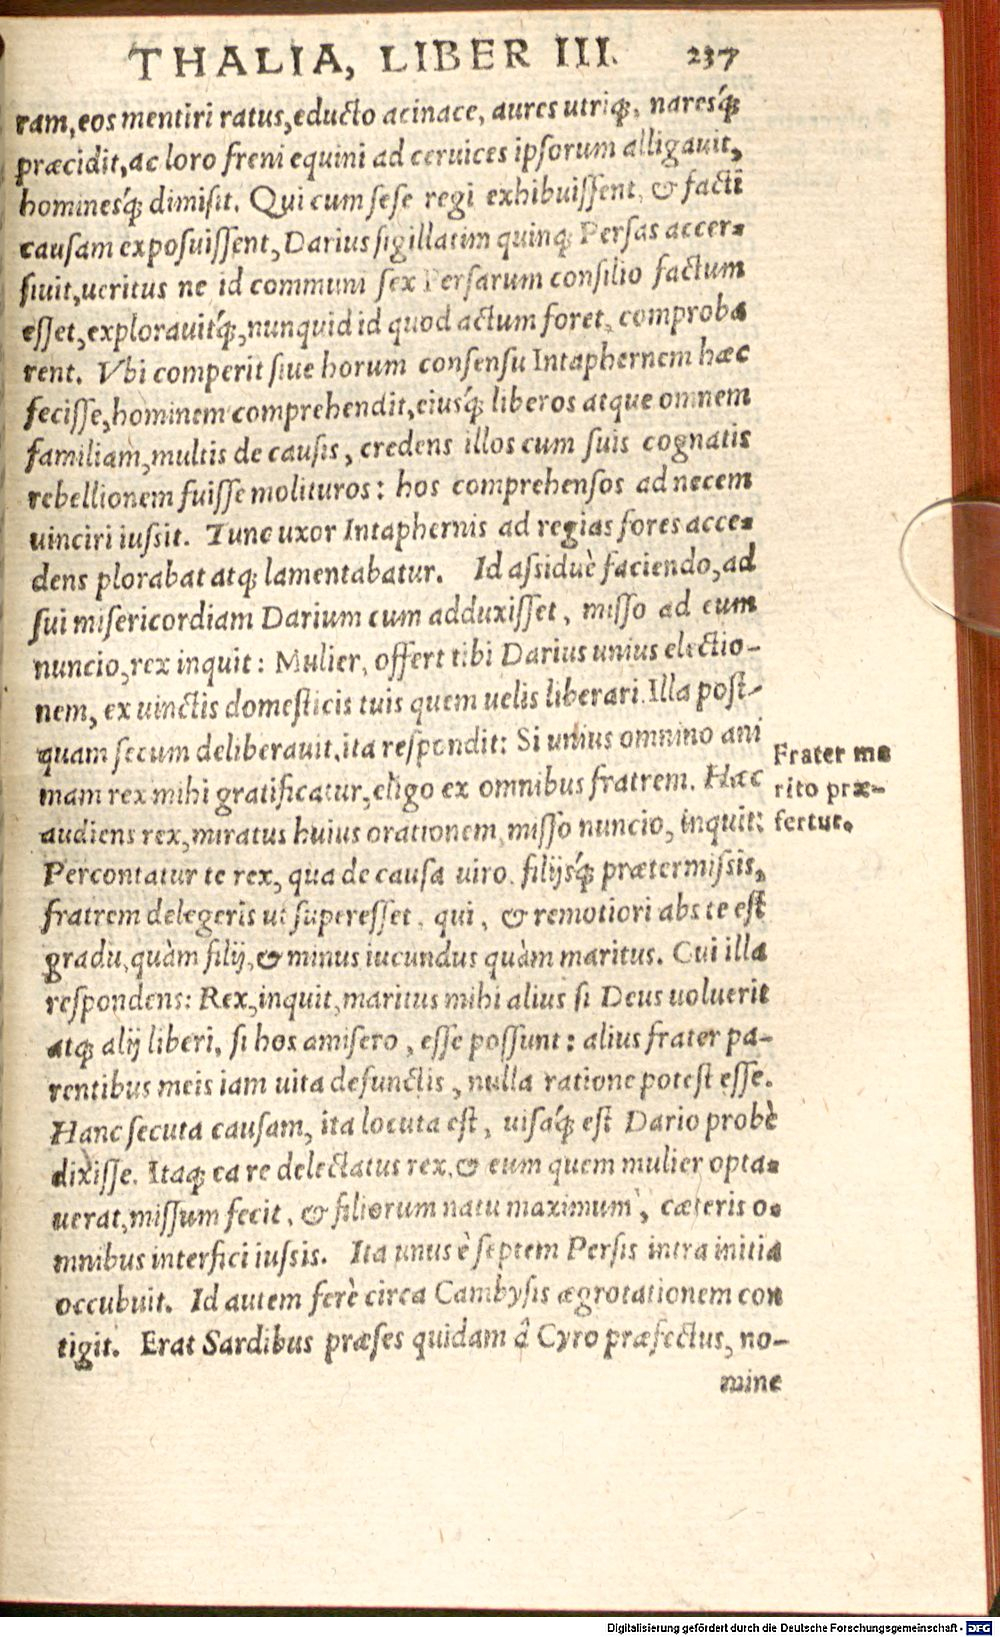 THALIA, LIBER III. 237
ram, eos mentiri ratus, educto acinace, aures utriq;, naresq́;
præcidit, ac loro freni equini ad ceruices ipsorum alligauit,
hominesq́; dimisit. Qui cum sese regi exhibuissent, & facti
causam exposuissent, Darius sigillatim quinq; Persas accer-
siuit, ueritus ne id communi sex Persarum consilio factum
esset, explorauitq́;, nunquid id quod actum foret, comproba
rent. Vbi comperit siue horum consensu Intaphernem hæc
fecisse, hominem comprehendit, eiusq́; liberos atque omnem
familiam, multis de causis, credens illos cum suis cognatis
rebellionem fuisse molituros: hos comprehensos ad necem
uinciri iussit. Tunc uxor Intaphernis ad regias fores acce-
dens plorabat atq; lamentabatur. Id assiduè faciendo, ad
sui misericordiam Darium cum adduxisset, misso ad eum
nuncio, rex inquit: Mulier, offert tibi Darius unius electio-
nem, ex uinctis domesticis tuis quem uelis liberari. Illa post-
quam secum deliberauit, ita respondit: Si unius omnino ani
mam rex mihi gratificatur, eligo ex omnibus fratrem. Hæc
audiens rex, miratus huius orationem, misso nuncio, inquit:
Percontatur te rex, qua de causa uiro, filijsq́; prætermissis,
fratrem delegeris ut superesset, qui, & remotiori abs te est
gradu, quàm filij, & minus iucundus quàm maritus. Cui illa
respondens: Rex, inquit, maritus mihi alius si Deus uoluerit
atq; alij liberi, si hos amisero, esse possunt: alius frater pa-
rentibus meis iam uita defunctis, nulla ratione potest esse.
Hanc secuta causam, ita locuta est, uisaq́; est Dario probè
dixisse. Itaq; ea re delectatus rex, & eum quem mulier opta-
uerat, missum fecit, & filiorum natu maximum, cæteris o-
mnibus interfici iussis. Ita unus è septem Persis intra initia
occubuit. Id autem ferè circa Cambysis ægrotationem con
tigit. Erat Sardibus præses quidam â Cyro præfectus, no-
mine
Frater me
rito præ-
fertur.
Digitalisierung gefördert durch die Deutsche Forschungsgemeinschaft - DFG